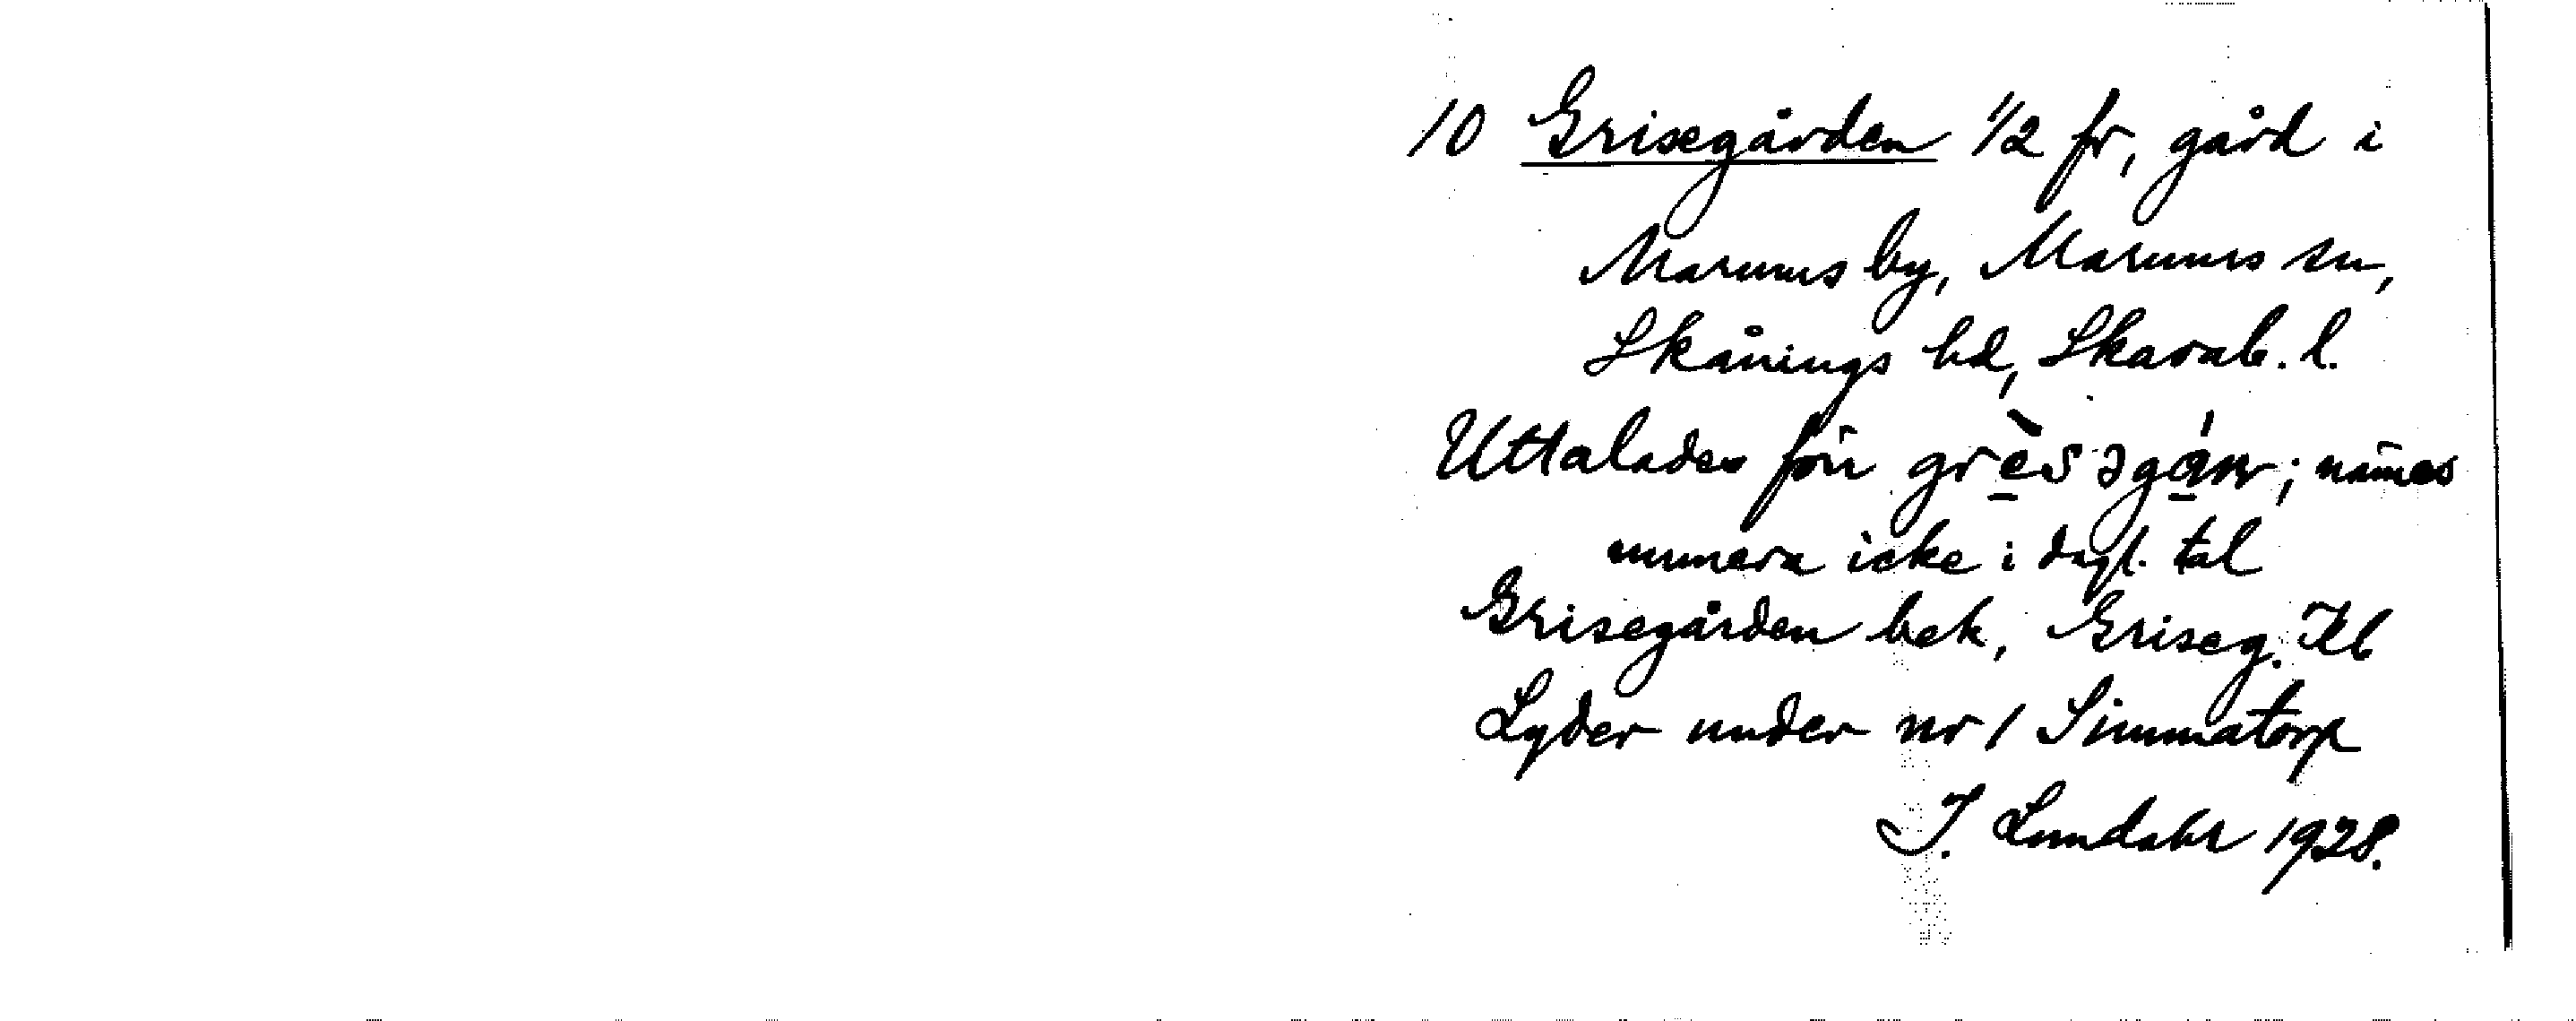 10 Grisegården 1/2 fr, gård i
Marums by, Marums sn,
Skånings hd, Skarab. l.
Uttalades förr grèsəgán; nämnes
numera icke i dagl. tal
Grisegården bek, Griseg. Kb
Lyder under nr 1 Simmatorp
I. Lundahl 1928.